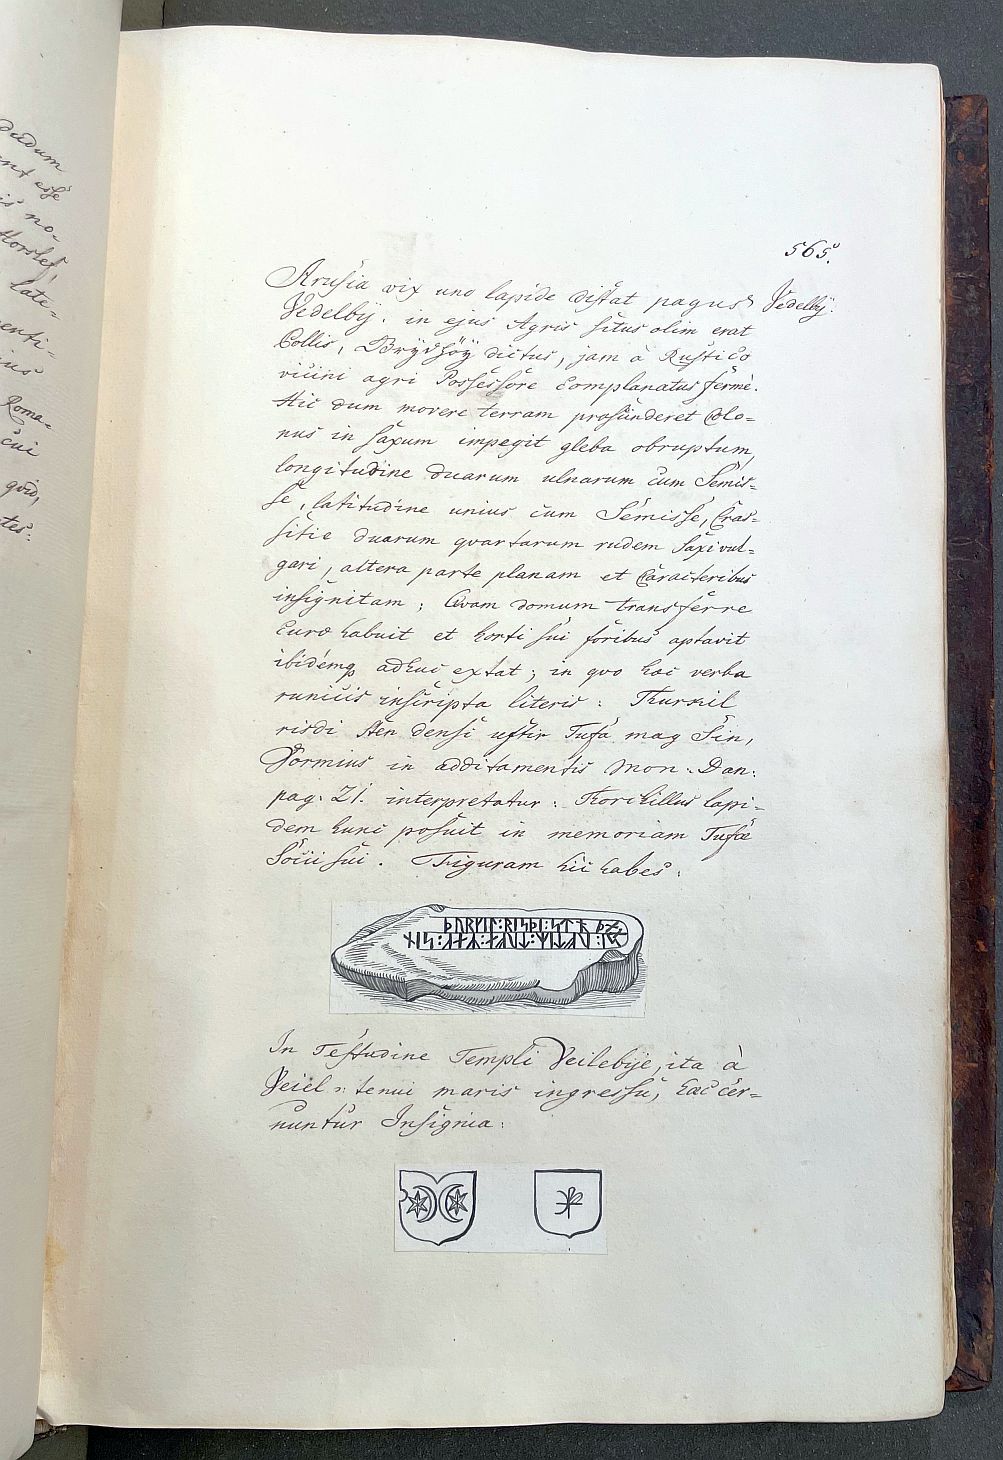 dudum
ent esse
is no-
Horslef,
late-
enti-
ius
Roma-
cui
qvid,
tes:
565.
Arusia vix uno lapide distat pagus Vedelbÿ.
Vedelbÿ. in ejus Agris situs olim erat
Collis, Brÿdhöÿ dictus, jam à Rustico
vicini agri Possessore Complanatus fermè.
Hic dum movere terram profunderet Colo=
nus in saxum impegit gleba obruptum,
longitudine duarum ulnarum cum Semis=
se, latitudine unius cum Semisse, Cras=
sitie duarum qvartarum rudem saxi vul=
gari, altera parte planam et Caracteribus
insignitam; Qvam domum transferre
Curo habuit et horti sui foribus aptavit
ibidemq adhuc extat; in qvo hæc verba
runicis inscripta literis: Thurkil
risdi Sten densi uftir Tufa mag Sin,
Wormius in additamentis Mon: Dan:
pag: 21. interpretatur: Thorkillus lapi=
dem hunc posuit in memoriam Tufæ
Socii sui. Figuram hic habes:
ᚦᚢᚱᚴᛁᛚ:ᚱᛁᛋᚦᛁ:ᛋᛏ
In Testudine Templi Veilebÿe, ita à
Veiel: tenui maris ingressu, hac cer=
nuntur Insignia: